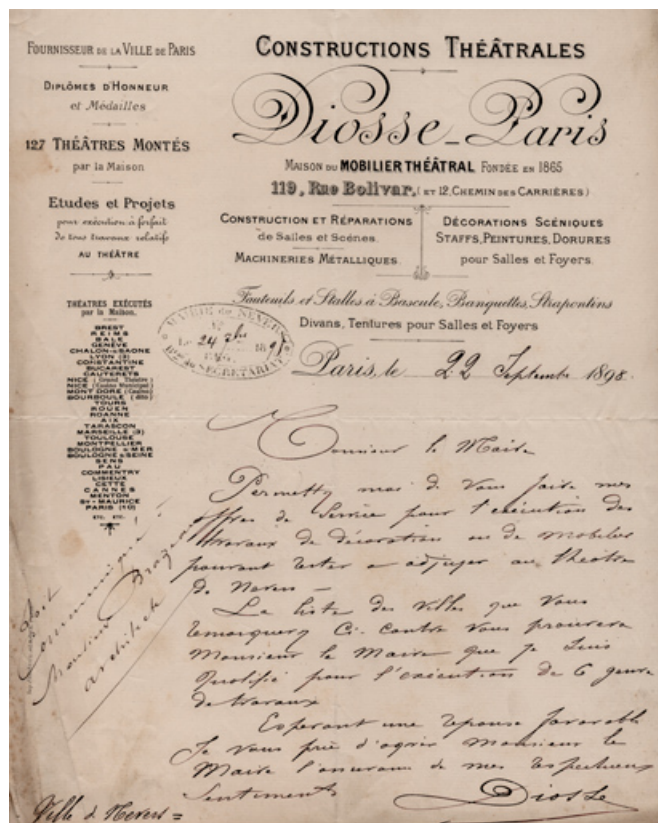 FOURNISSEUR DE LA VILLE DE PARIS
DIPLÔMES D'HONNEUR
et Médailles
127 THÉÂTRES MONTÉS
par la Maison
Etudes et Projets
pour exécution à forfait
de tous travaux relatifs
AU THÉÂTRE
THÉATRES EXÉCUTÉS
par la Maison.
BREST
REIMS
BALE
GENÈVE
CHALON-s-SAONE
LYON (3)
CONSTANTINE
BUCAREST
CAUTERETS
NICE (Grand Théâtre)
NICE (Casino Municipal)
MONT DORE (Casino)
BOURBOULE (ditto)
TOURS
ROUEN
ROANNE
AIX
TARASCON
MARSEILLE (3)
TOULOUSE
MONTPELLIER
BOULOGNE s/MER
BOULOGNE s/SEINE
SENS
PAU
COMMENTRY
LISIEUX
CETTE
CANNES
MENTON
St-MAURICE
PARIS (10)
etc. etc.
CONSTRUCTIONS THÉÂTRALES
Diosse_Paris
MAISON DU MOBILIER THÉÂTRAL FONDÉE EN 1865
119, Rue Bolivar, (ET 12, CHEMIN DES CARRIÈRES)
CONSTRUCTION ET RÉPARATIONS
de Salles et Scènes.
MACHINERIES MÉTALLIQUES.
DÉCORATIONS SCÉNIQUES
STAFFS, PEINTURES, DORURES
pour Salles et Foyers.
Fauteuils et Stalles à Bascule, Banquettes, Strapontins
Divans, Tentures pour Salles et Foyers
MAIRIE de NEVERS
Le 24 7bre 189
SECRÉTARIAT
Paris, le 22 Septembre 1898.
Monsieur le Maire
Permettez moi de vous faire mes
offres de Service pour l'exécution des
travaux de décoration ou de mobilier
pouvant rester a adjuger au théâtre
de Nevers -
La liste des villes que vous
remarquerez Ci-contre vous prouvera
Monsieur le Maire que je suis
qualifié pour l'exécution de ce genre
de travaux
Esperant une reponse favorable
Je vous prie d'agréer Monsieur le
Maire l'assurance de mes respectueux
Sentiments
Diosse
Communiqué
Monsieur
architecte
Ville de Nevers =